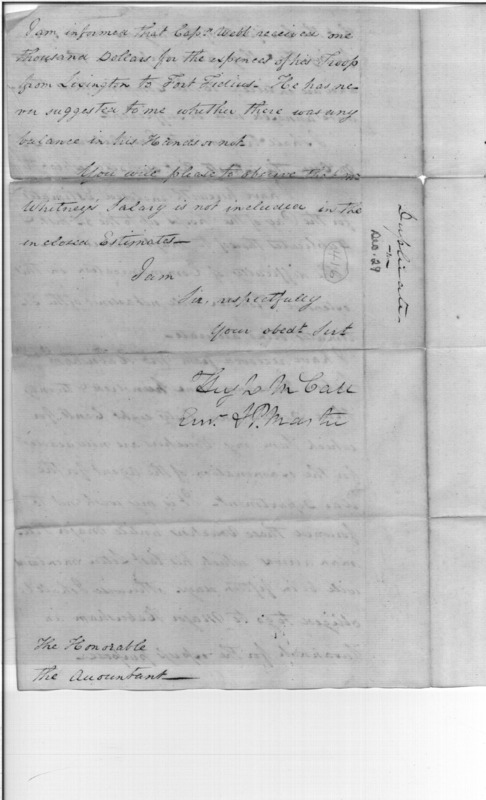 I am informed that Capt. Webb received one
thousand Dollars for the expences of his Troop
from Lexington to Fort Fidius. He has ne-
ver suggested to me whether there was any
balance in his Hands or not.
You will please to observe that
Whitneys Salary is not included in the
enclosed Estimates—
I am
Sir, respectfully
Your obedt Sert
Hugh McCall
The Honorable
the Accountant—
Duplicate
Dec. 29